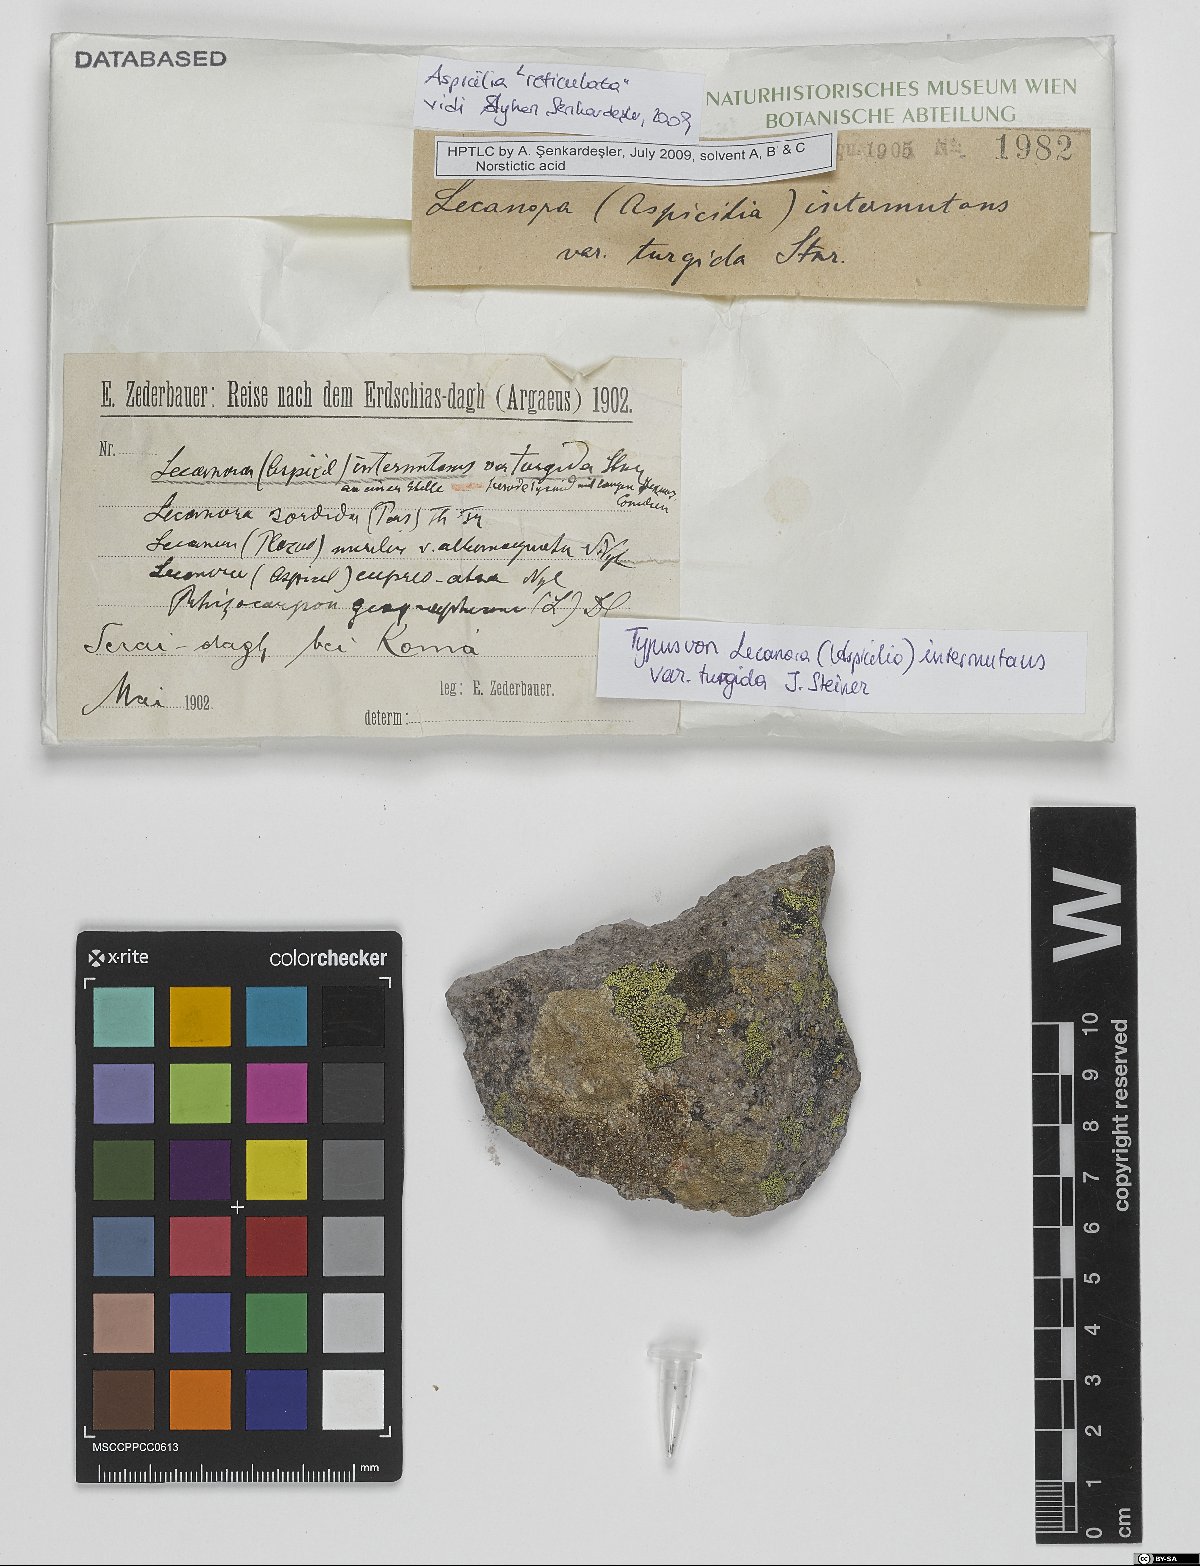 DATABASED
Aspicilia "reticulata"
vidi Senkardesler, 2009
NATURHISTORISCHES MUSEUM WIEN
BOTANISCHE ABTEILUNG
HPTLC by A. Şenkardeşler, July 2009, solvent A, B & C
Norstictic acid
1905 No. 1982
Lecanora (Aspicilia) intermutans
var. turgida Stnr.
E. Zederbauer: Reise nach dem Erdschias-dagh (Argaeus) 1902.
Nr.
Lecanora (Aspicil) intermutans var turgida Stnr
an einer Stelle
Lecanora sordida (Pers) Th Fr
Lecanora (Aspicil) cupreo-atra Nyl
Rhizocarpon geographicum (L) DC
Serai-dagh bei Konia
Mai 1902
leg: E. Zederbauer.
determ:
Typus von Lecanora (Aspicilia) intermutans
var. turgida J. Steiner
x-rite colorchecker
MSCCPPCC0613
mm
W
10
9
8
7
6
5
4
3
2
1
0
cm
copyright reserved
CC BY-SA